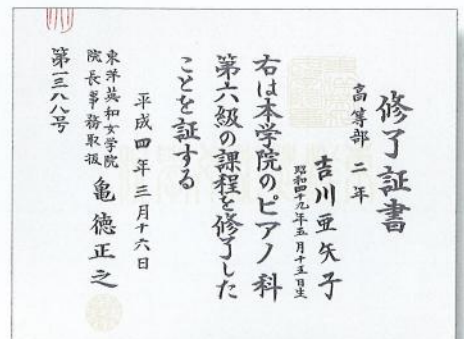 修了証書
高等部 二年
吉川亜矢子
昭和四十九年五月十五日生
右は本学院のピアノ科
第六級の課程を修了した
ことを証する
平成四年三月十六日
東洋英和女学院
院長事務取扱 亀徳正之
第一三八八号